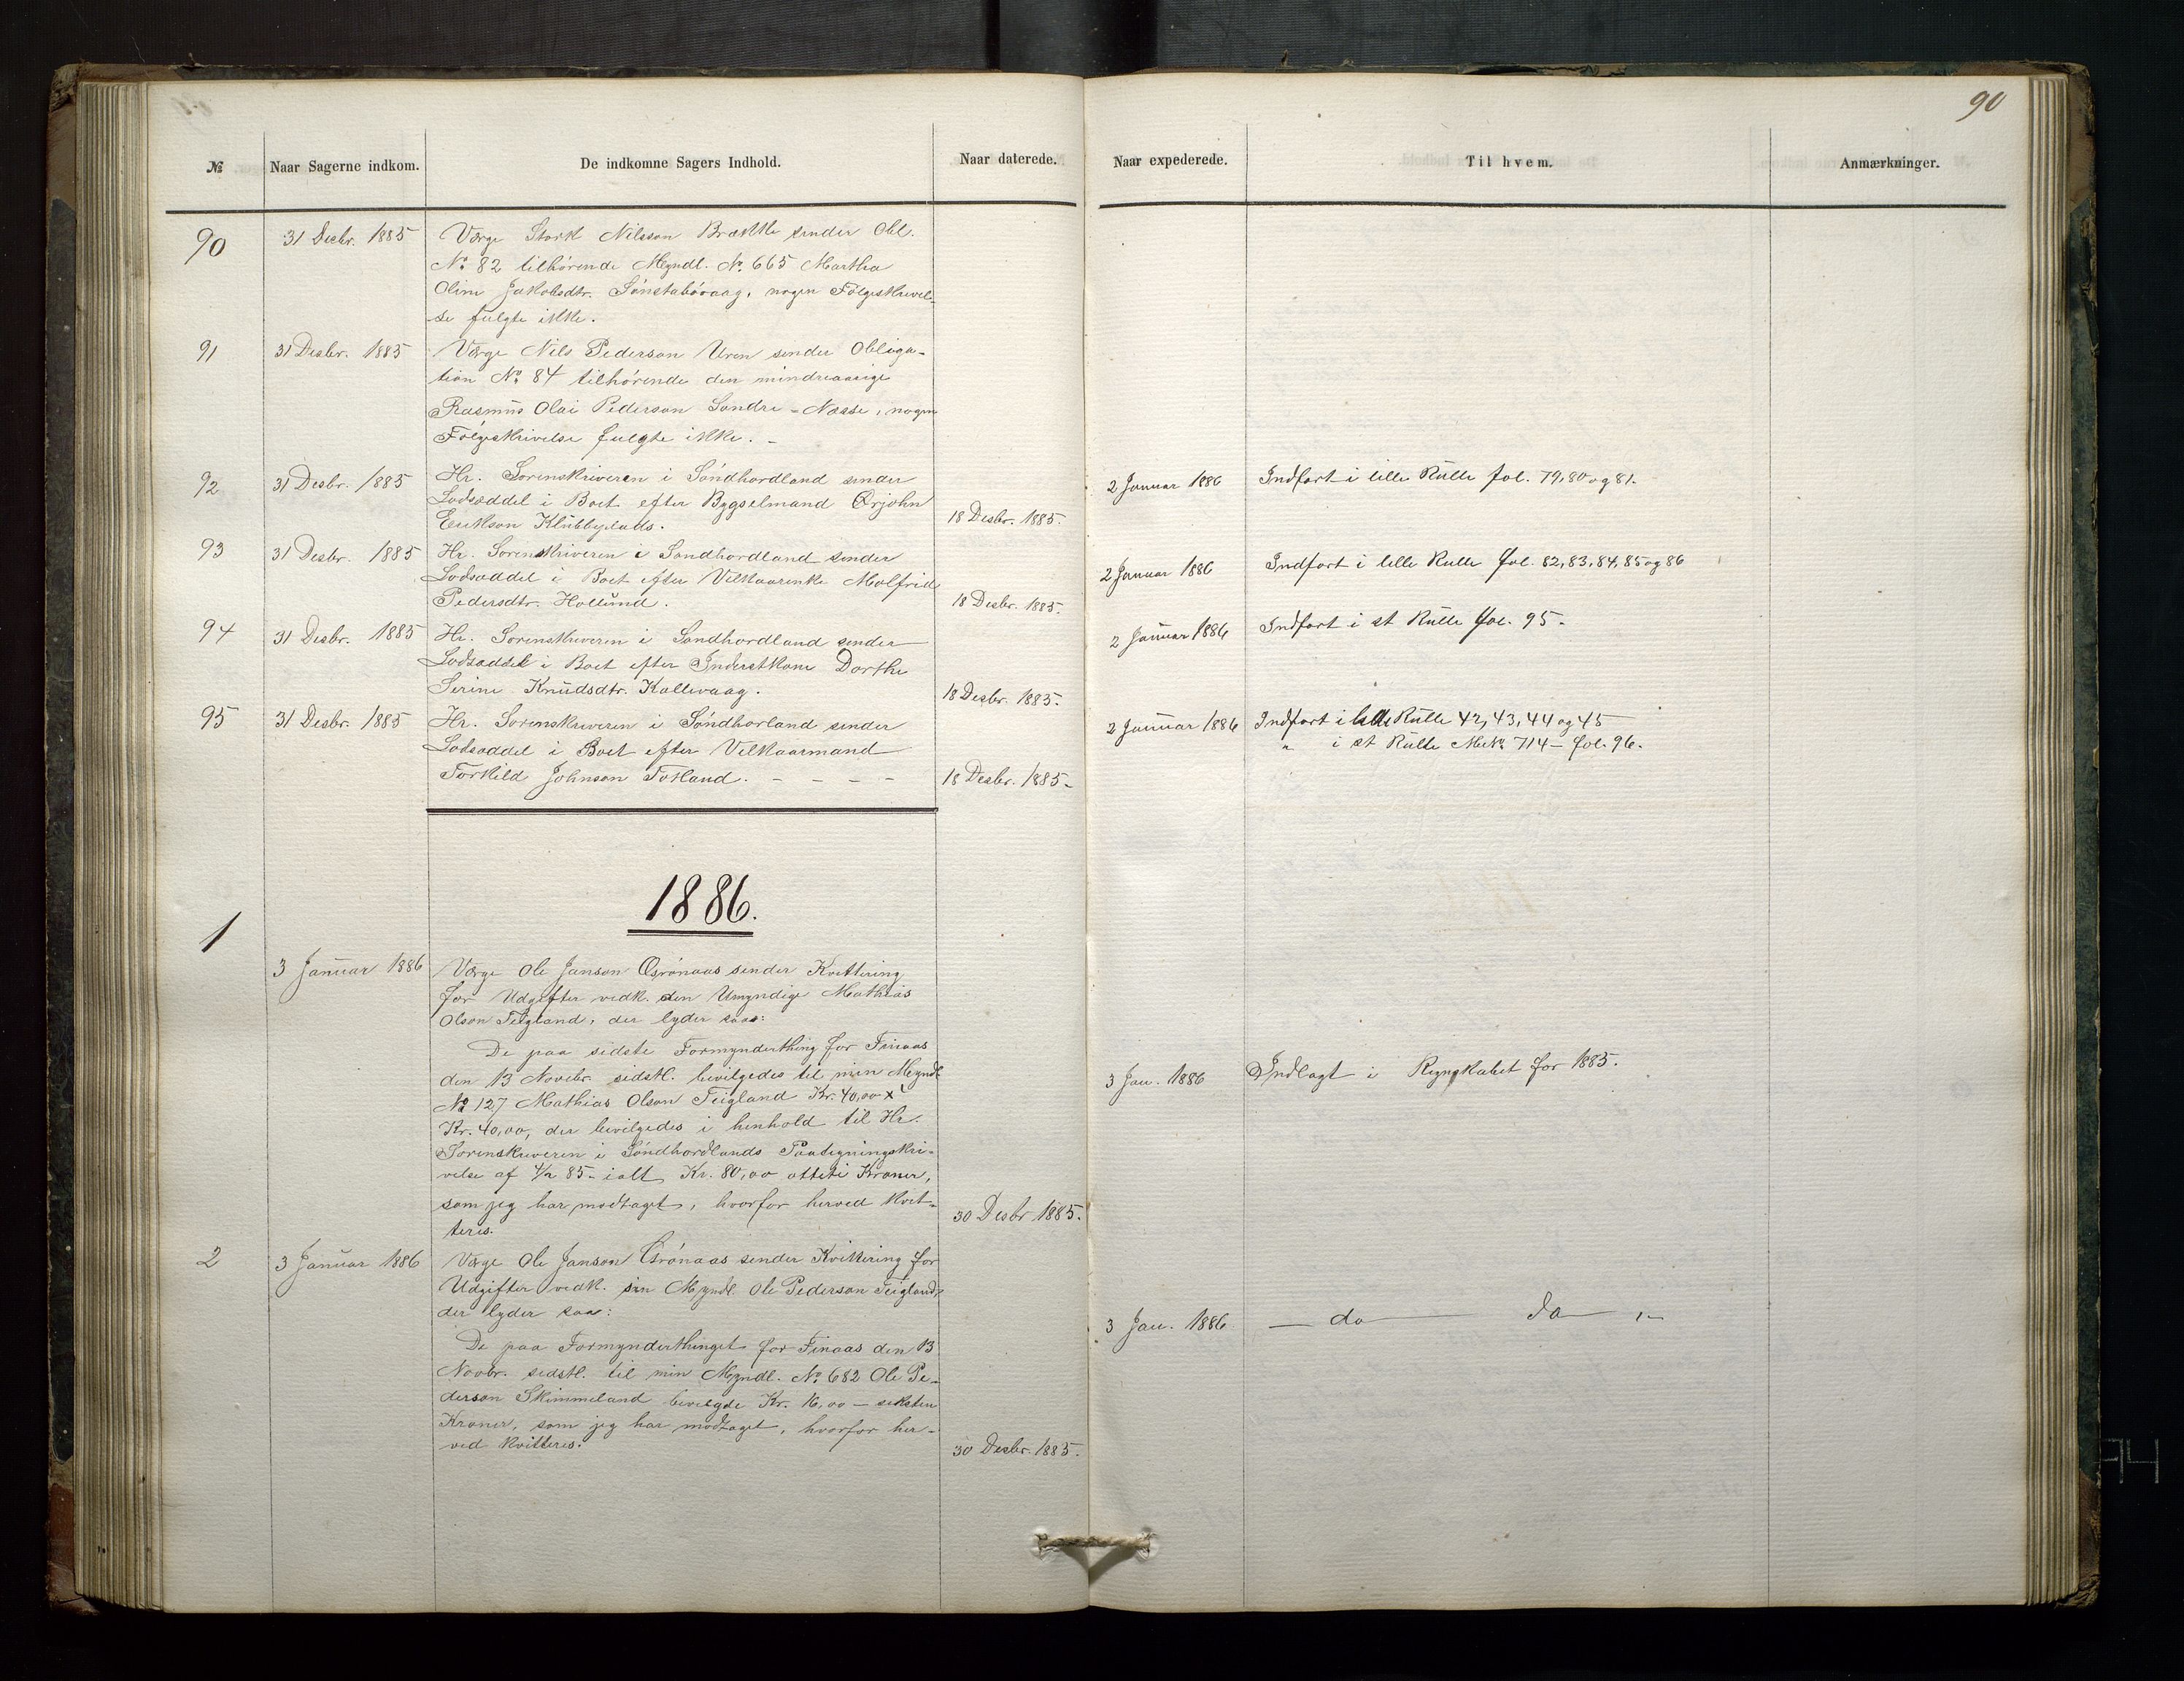 90
№ Naar Sagerne indkom. De indkomne Sagers Indhold. Naar daterede. Naar expederede. Til hvem. Anmærkninger.
90 31 Decbr. 1885 Værge Stork Nilsson Brække sender Obl.
No. 82 tilhørende Myndl. No. 665 Martha
Oline Jakobsdtr. Sønstabövaag, nogen Følgeskrivel-
se fulgte ikke.
91 31 Desbr. 1885 Værge Nils Pederson Uren sender Obliga-
tion No. 84 tilhørende den mindreaarige
Rasmus Olai Pederson Søndre-Næsse, nogen
Følgeskrivelse fulgte ikke. -
92 31 Desbr. 1885 Hr. Sorenskriveren i Söndhordland sender
Lodseddel i Boet efter Bygselmand Ørjohn
Erikson Klubbeplads. 18 Desbr. 1885.
2 Januar 1886 Indført i lille Rulle fol. 79, 80 og 81.
93 31 Desbr. 1885 Hr. Sorenskriveren i Søndhordland sender
Lodseddel i Boet efter Velkaarenke Malfrid
Pedersdtr. Hollund. 18 Desbr. 1885.
2 Januar 1886 Indført i lille Rulle fol. 82, 83, 84, 85 og 86
94 31 Desbr. 1885 Hr. Sorenskriveren i Søndhordland sender
Lodseddel i Boet efter Inderstkone Dorthe
Serine Knudsdtr. Kallevaag. 18 Desbr. 1885.
2 Januar 1886 Indført i st Rulle fol. 95.
95 31 Desbr. 1885 Hr. Sorenskriveren i Söndhorland sender
Lodseddel i Boet efter Velkaarmand
Torkild Johnson Totland. - - - - 18 Desbr. 1885.
2 Januar 1886 Indført i lille Rulle 42, 43, 44 og 45
" i st Rulle M. No. 714 - fol. 96.
1886.
1
3 Januar 1886 Værge Ole Janson Grönaas sender Kvittering
for Udgifter vedk. den Umyndige Mathias
Olson Teigland, der lyder saa:
De paa sidste Formynderthing for Finaas
den 13 Novebr. sidstl. bevilgedes til min Myndl.
No 127 Mathias Olson Teigland Kr. 40,00 x
Kr. 40,00, der bevilgedes i henhold til Hr.
Sorenskriveren i Söndhordlands Paategningskri-
velse af 4/12 85 - ialt Kr. 80,00 otteti Kroner,
som jeg har modtaget, hvorfor herved kvit-
teres. 30 Desbr 1885.
3 Jan. 1886 Indlagt i Regnskabet for 1885.
2 3 Januar 1886 Værge Ole Janson Grönaas sender Kvittering for
Udgifter vedk. sin Myndl. Ole Pederson Teigland,
der lyder saa:
De paa Formynderthinget for Finaas den 13
Novbr. sidstl. til min Myndl. No. 682 Ole Pe-
derson Skimmeland bevilgde Kr. 16,00 - seksten
Kroner, som jeg har modtaget, hvorfor her-
ved kvitteres. 30 Desbr. 1885.
3 Jan. 1886. — do — do — "-